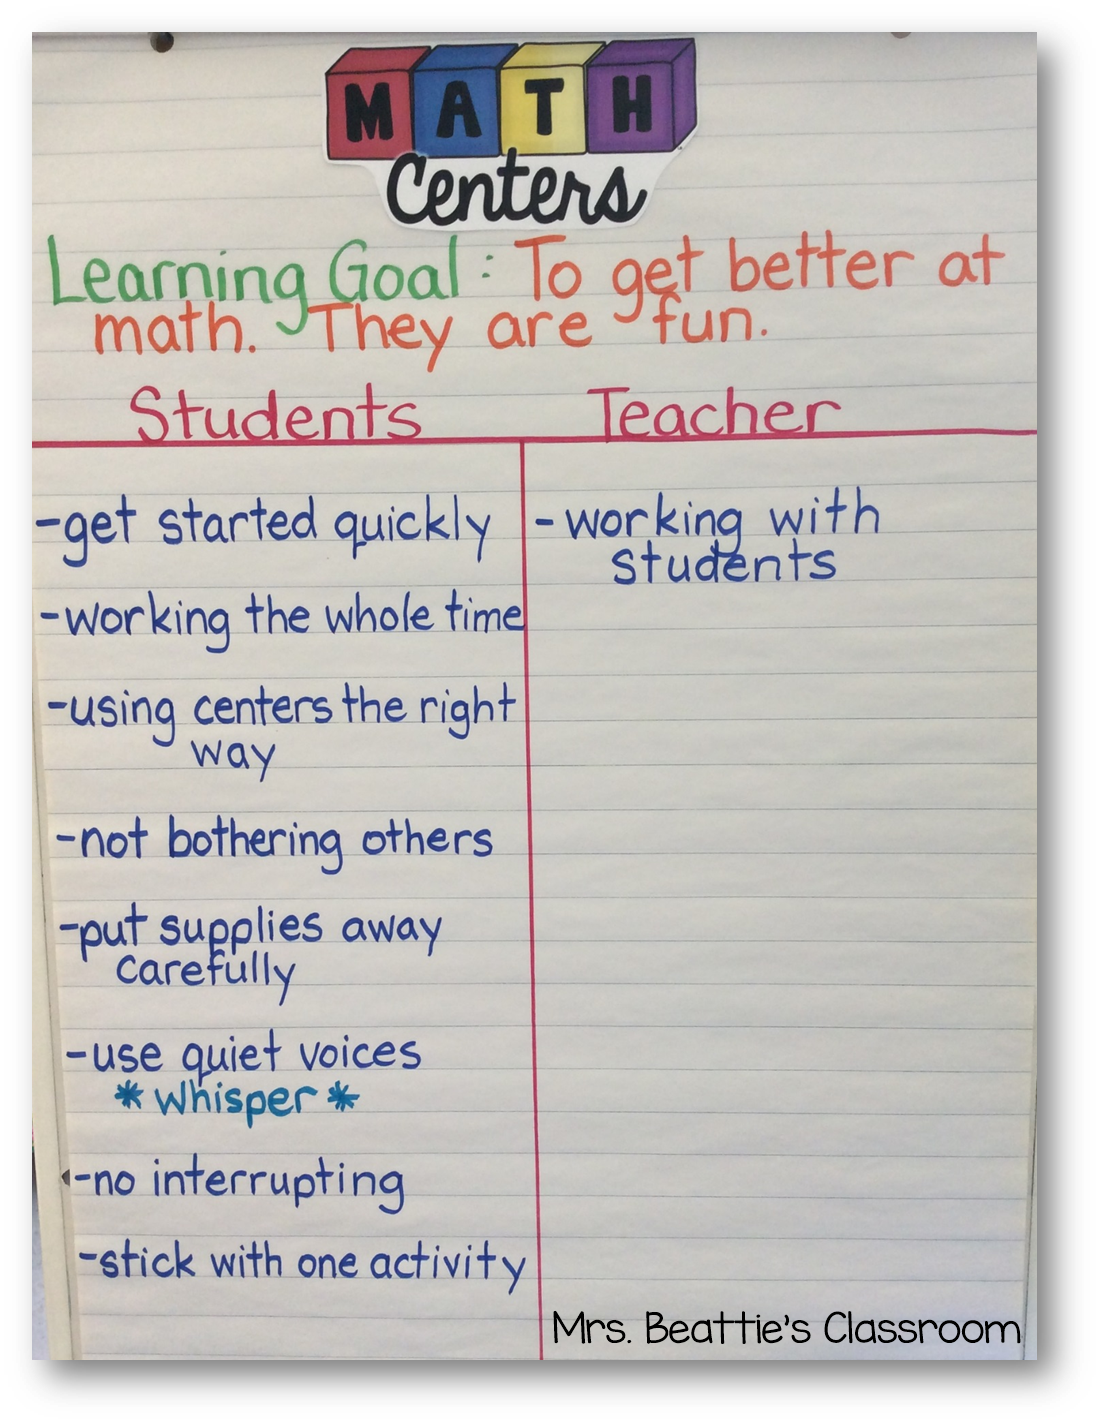 MATH
Centers
Learning Goal: To get better at
math. They are fun.
Students
Teacher
-get started quickly
-working the whole time
-using centers the right
way
-not bothering others
-put supplies away
carefully
-use quiet voices
*whisper*
-no interrupting
-stick with one activity
-working with
students
Mrs. Beattie's Classroom